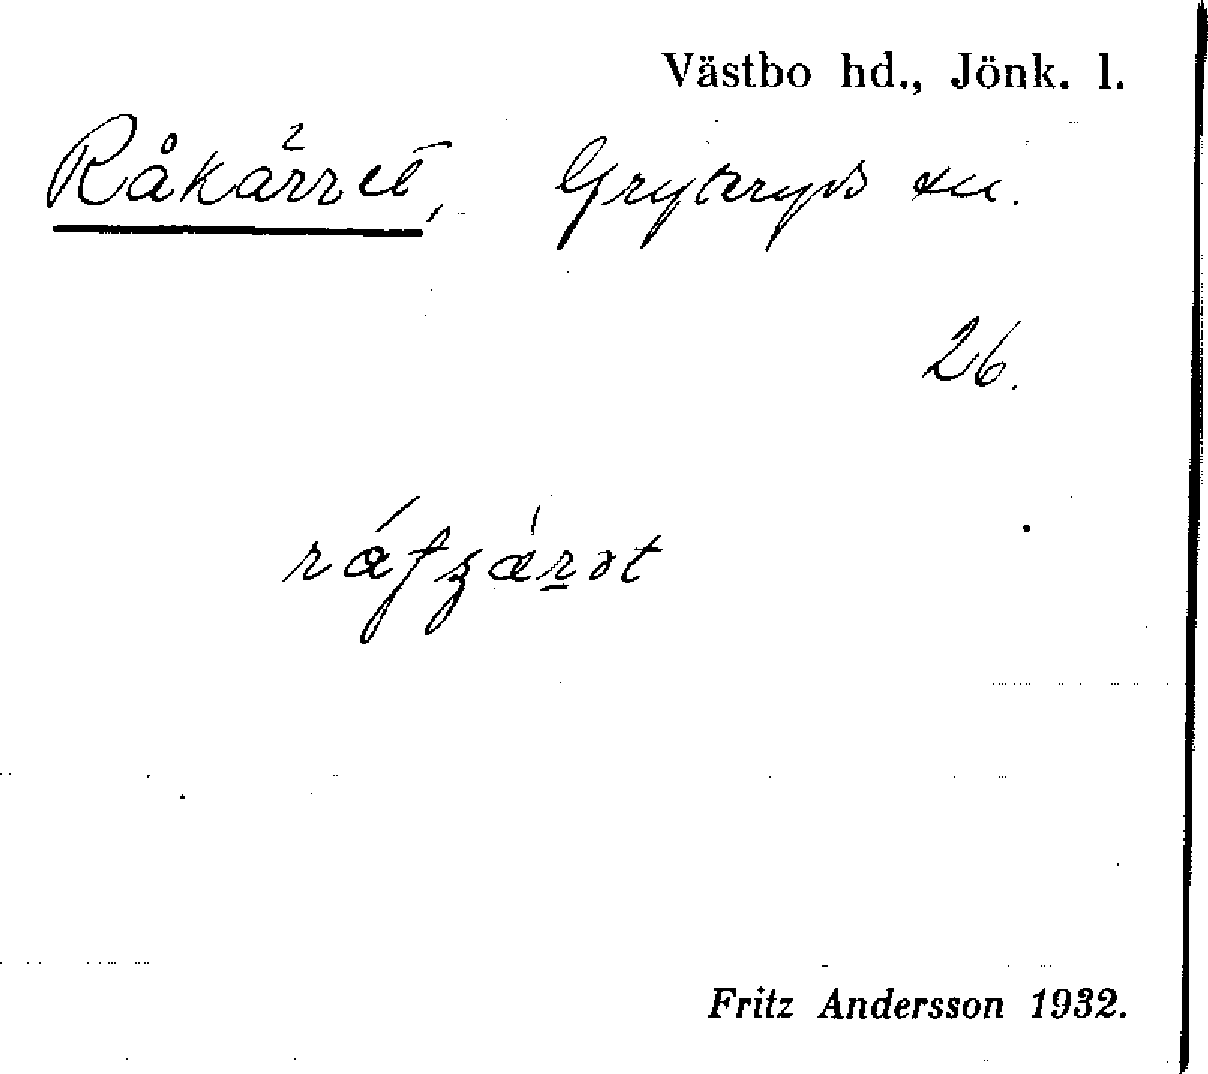 Västbo hd., Jönk. l.
Råkärret, Gryteryds sn.
26.
Fritz Andersson 1932.